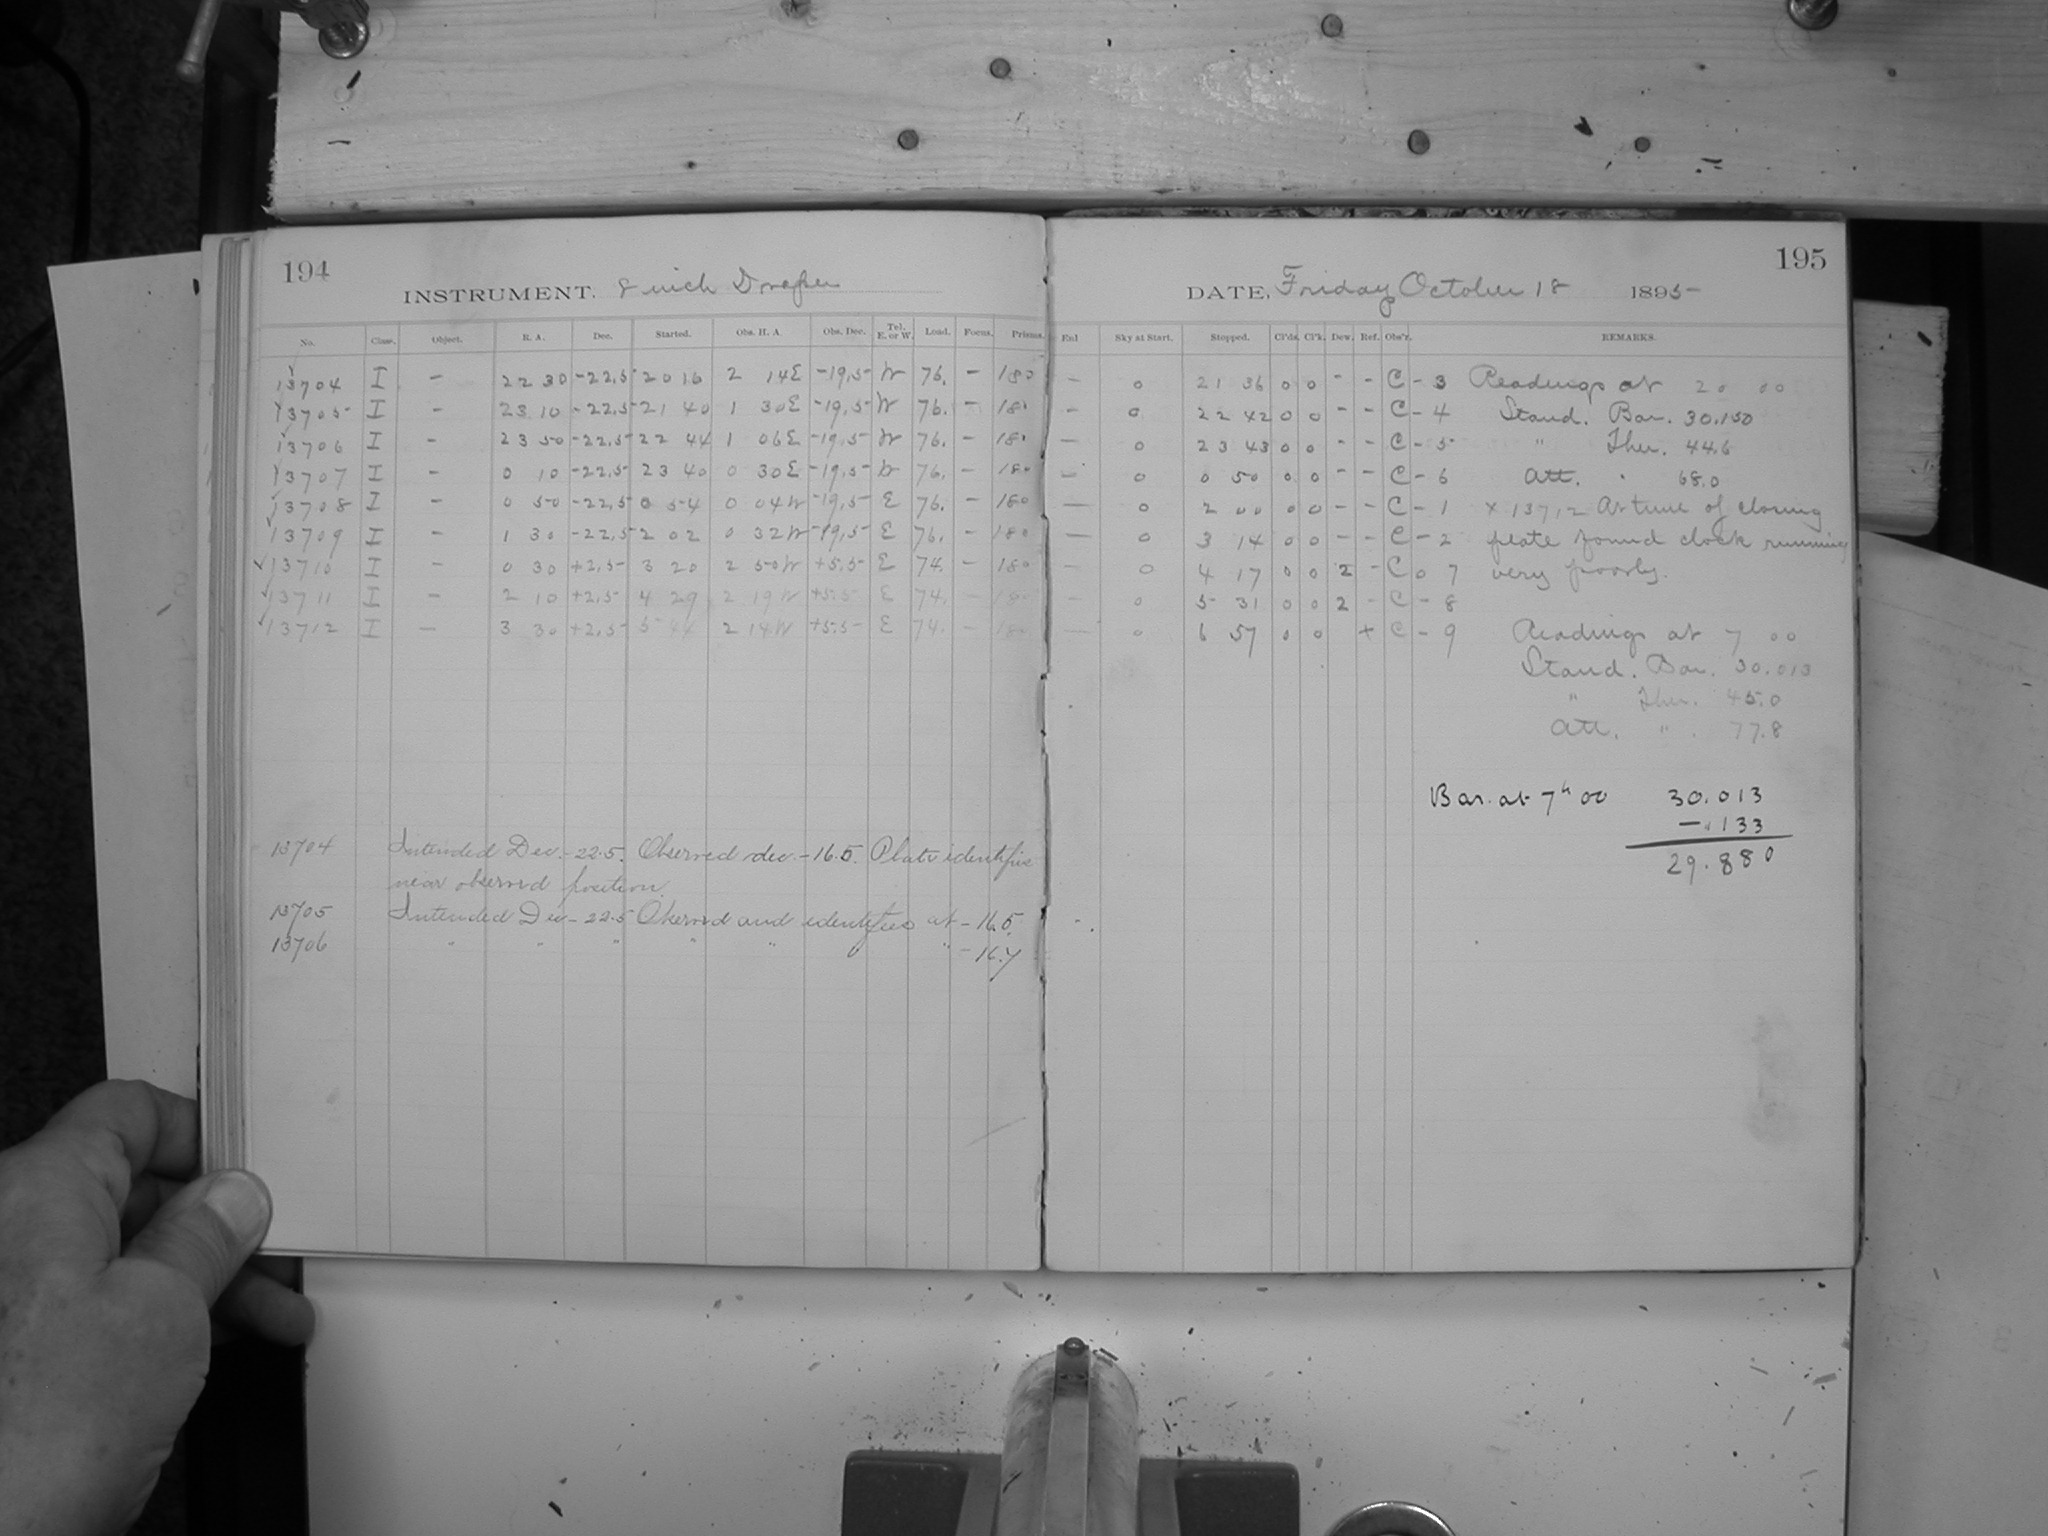 194
INSTRUMENT. 8 inch Draper
No. Class. Object. R. A. Dec. Started. Obs. H. A. Obs. Dec. Tel. E. or W. Load. Focus. Prisms.
13704 I - 22 30 -22.5 20 16 2 14E -19.5 W 76. - 180
13705 I - 23 10 -22.5 21 40 1 30E -19.5 W 76. - 180
13706 I - 23 50 -22.5 22 44 1 06E -19.5 W 76. - 180
13707 I - 0 10 -22.5 23 40 0 30E -19.5 W 76. - 180
13708 I - 0 50 -22.5 0 54 0 04W -19.5 E 76. - 180
13709 I - 1 30 -22.5 2 02 0 32W -19.5 E 76. - 180
13710 I - 0 30 +2.5 3 20 2 50W +5.5 E 74. - 180
13711 I - 2 10 +2.5 4 29 2 19W +5.5 E 74. - 180
13712 I - 3 30 +2.5 5 44 2 14W +5.5 E 74. - 180
13704 Intended Dec. -22.5. Observed dec. -16.5. Plate identifies
near observed position.
13705 Intended Dec -22.5 Observed and identifies at -16.5
13706 " " " " " " -16.7
195
DATE, Friday October 18 1895
Enl Sky at Start. Stopped. Cl'ds. Cl'k. Dew. Ref. Obs'r. REMARKS.
- 0 21 36 0 0 - - C - 3 Readings at 20 00
- 0 22 42 0 0 - - C - 4 Stand. Bar. 30.150
- 0 23 43 0 0 - - C - 5 " Ther. 44.6
- 0 0 50 0 0 - - C - 6 Att. " 68.0
- 0 2 00 0 0 - - C - 1 x 13712 At time of closing
- 0 3 14 0 0 - - C - 2 plate found clock running
- 0 4 17 0 0 2 - C 0 7 very poorly.
- 0 5 31 0 0 2 - C - 8
- 0 6 57 0 0 x C - 9 Readings at 7 00
Stand. Bar. 30.013
" Ther. 45.0
Att. " . 77.8
Bar. at 7h 00 30.013
-.133
29.880